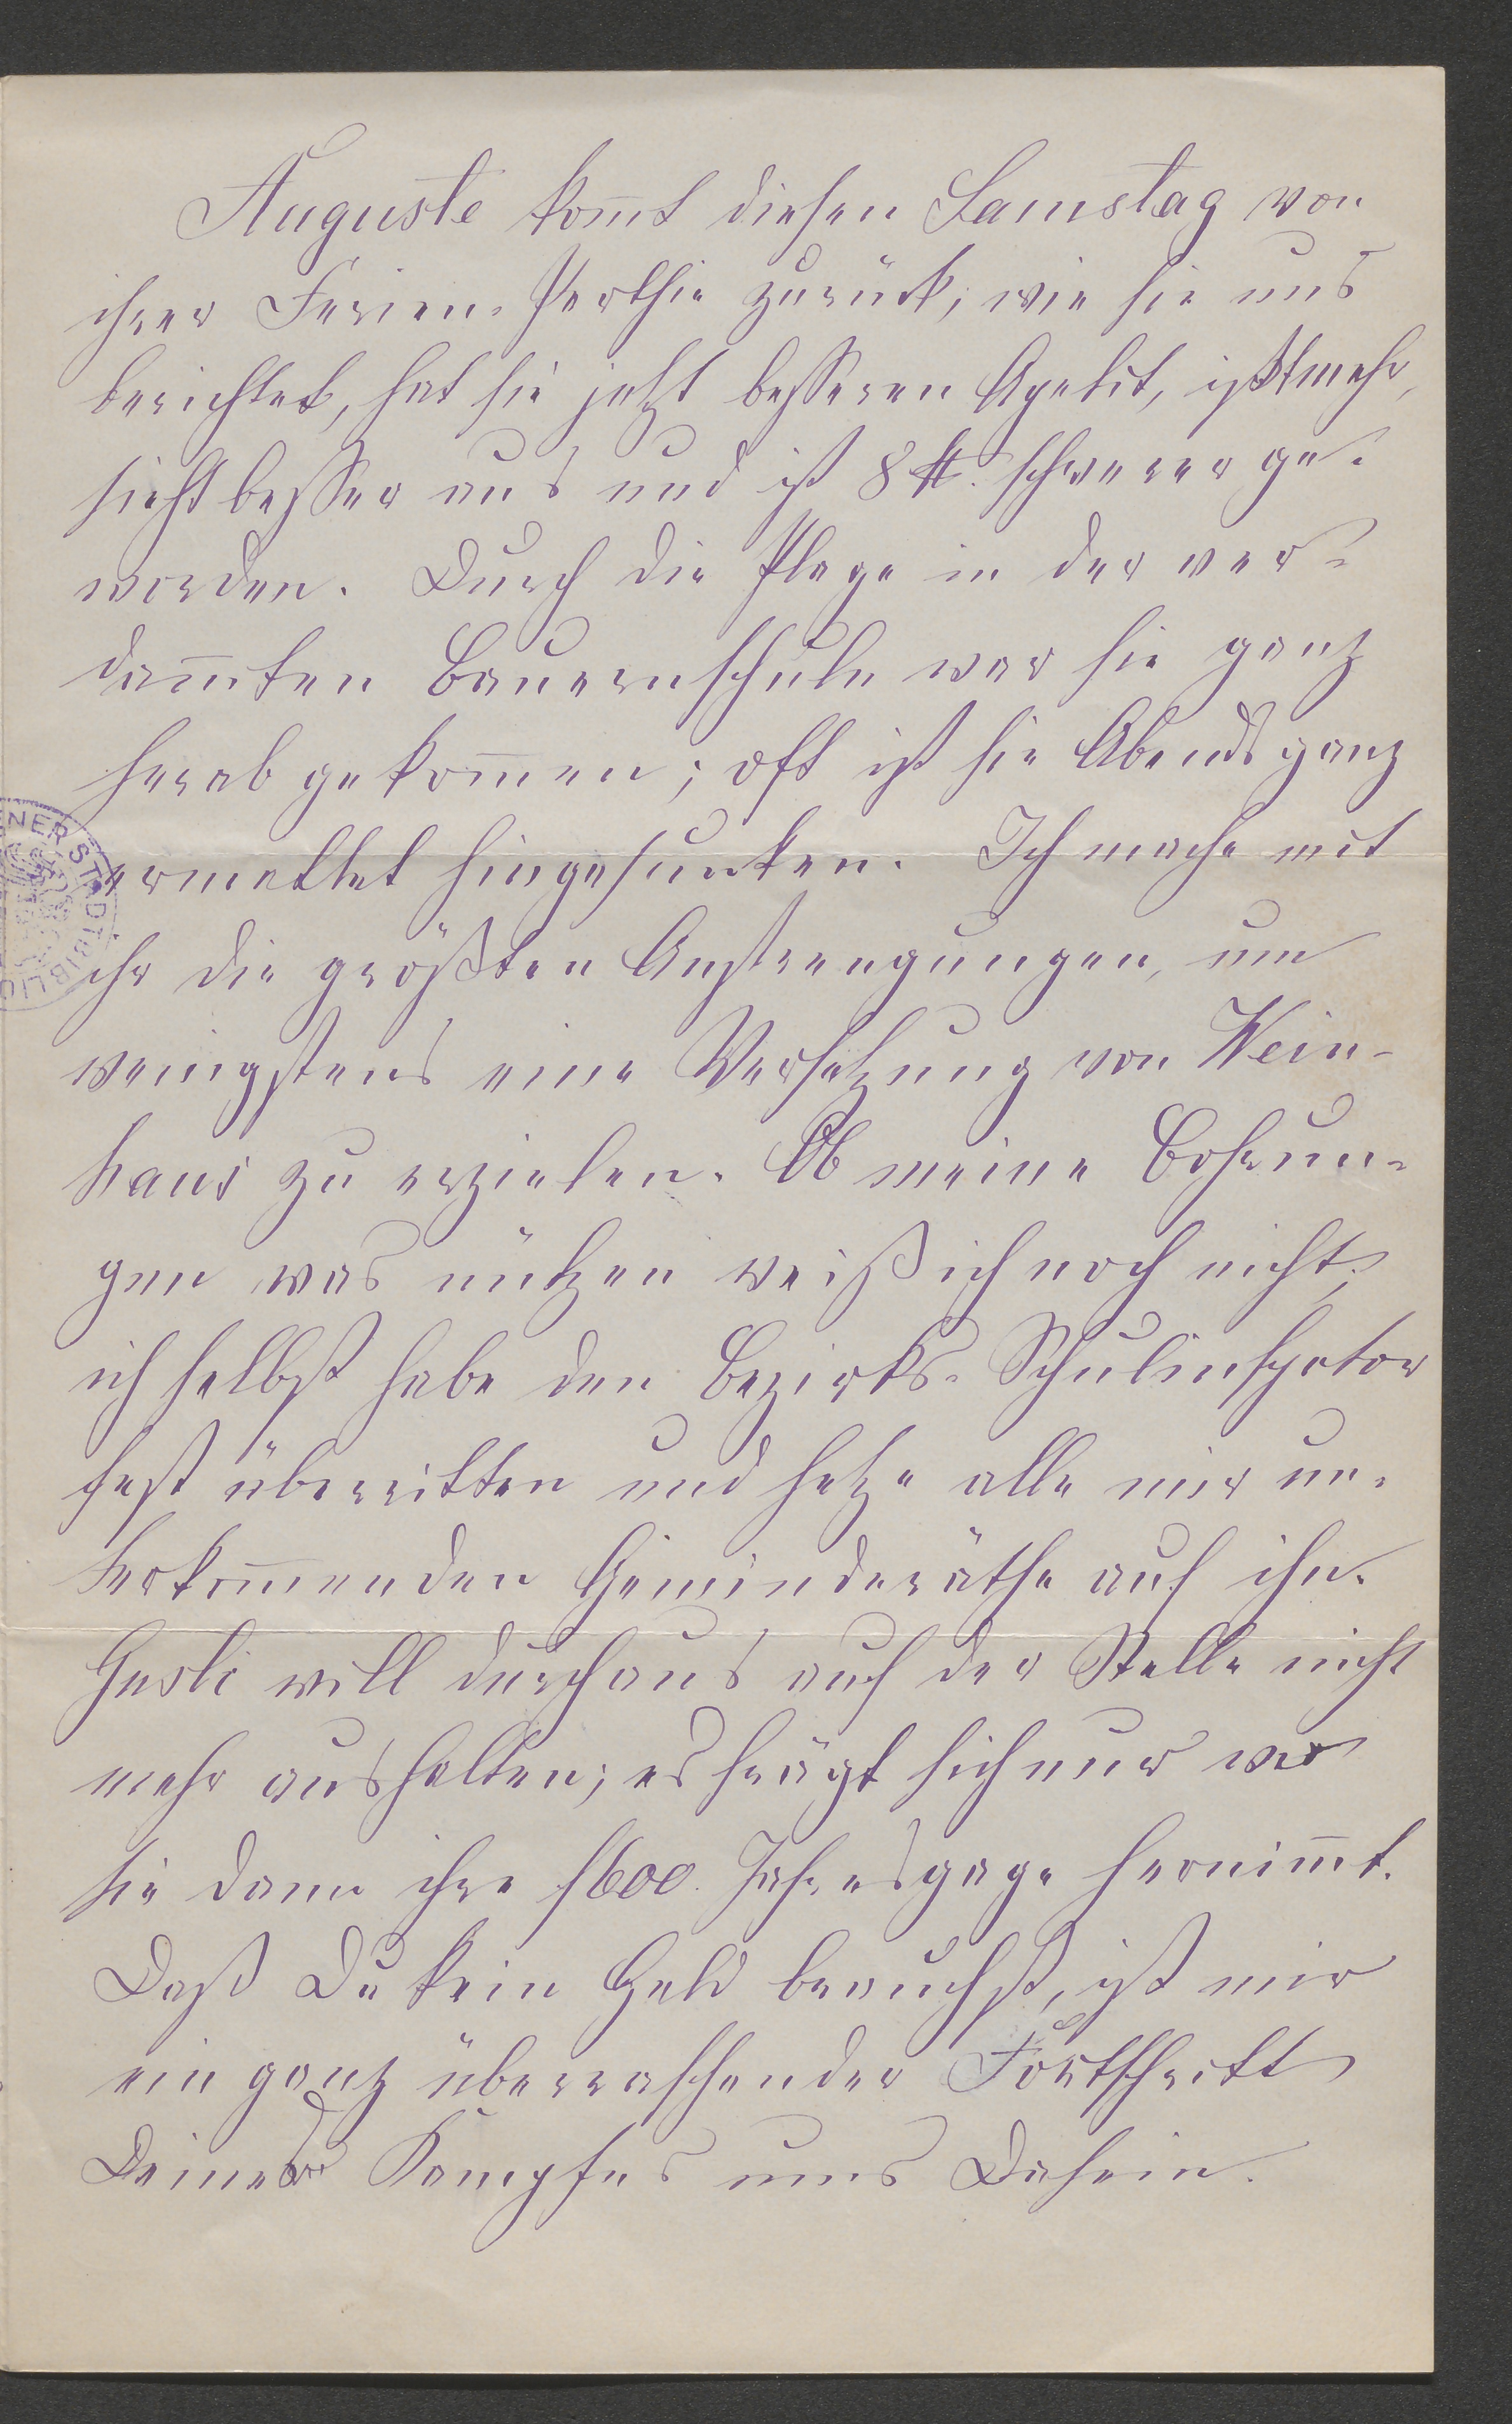 Auguste kom̅t diesen Samstag von
ihrer Ferien-Parthie zurück; wie sie uns
berichtet, hat sie jetzt besseren Apetit, ißt mehr,
sieht besser aus und ist 8 ℔. schwerer ge-
worden. Durch die Plage in der ver-
dam̅ten Bauernschule war sie ganz
herab gekom̅en; oft ist sie Abends ganz
ermattet hingesunken. Ich mache mit
ihr die größten Anstrengungen, um
wenigstens eine Versetzung von Wein-
haus zu erzielen. Ob meine Bohrun-
gen was nützen weiß ich noch nicht;
ich selbst habe den Bezirks-Schulinspektor
fast überritten und hetze alle mir un-
terkom̅enden Gemeinderäthe auf ihn.
Gusti will durchaus auf der Stelle nicht
mehr aushalten; es frägt sich nur wo
sie dann ihre f 600. Jahresgage hernim̅t.
Daß Du kein Geld brauchst, ist mir
ein ganz überraschender Fortschritt
Deines Kampfes ums Dasein.
NER STADTBIBLIO